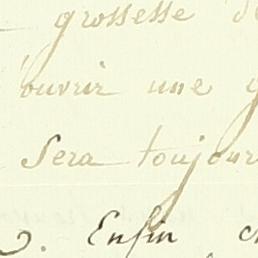 grossesse de
ouvrir une
Sera toujour
. Enfin